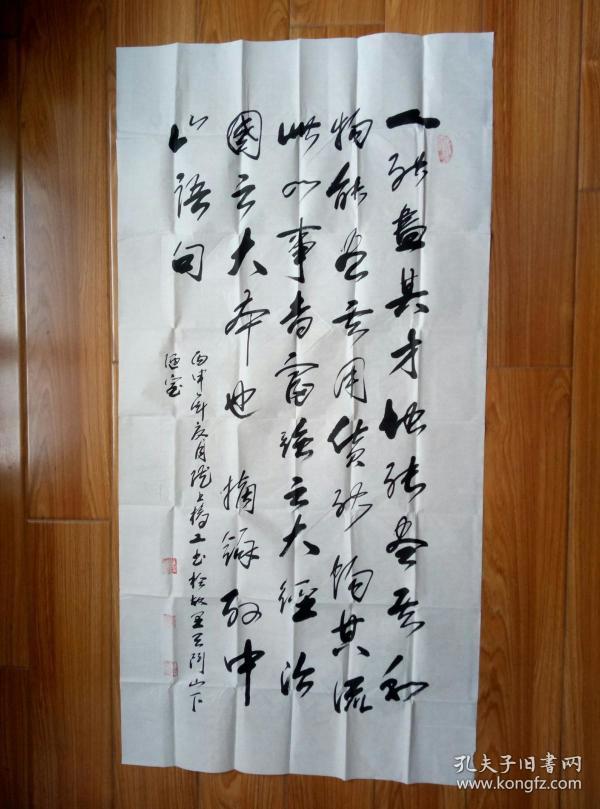 人能尽其才地能尽其利
物能尽其用货能畅其流
此四事者富强之大经治
國之大本也 摘錄孙中
山语句
丙申年 月 上 工书於 山下
孔夫子旧书网
www.kongfz.com